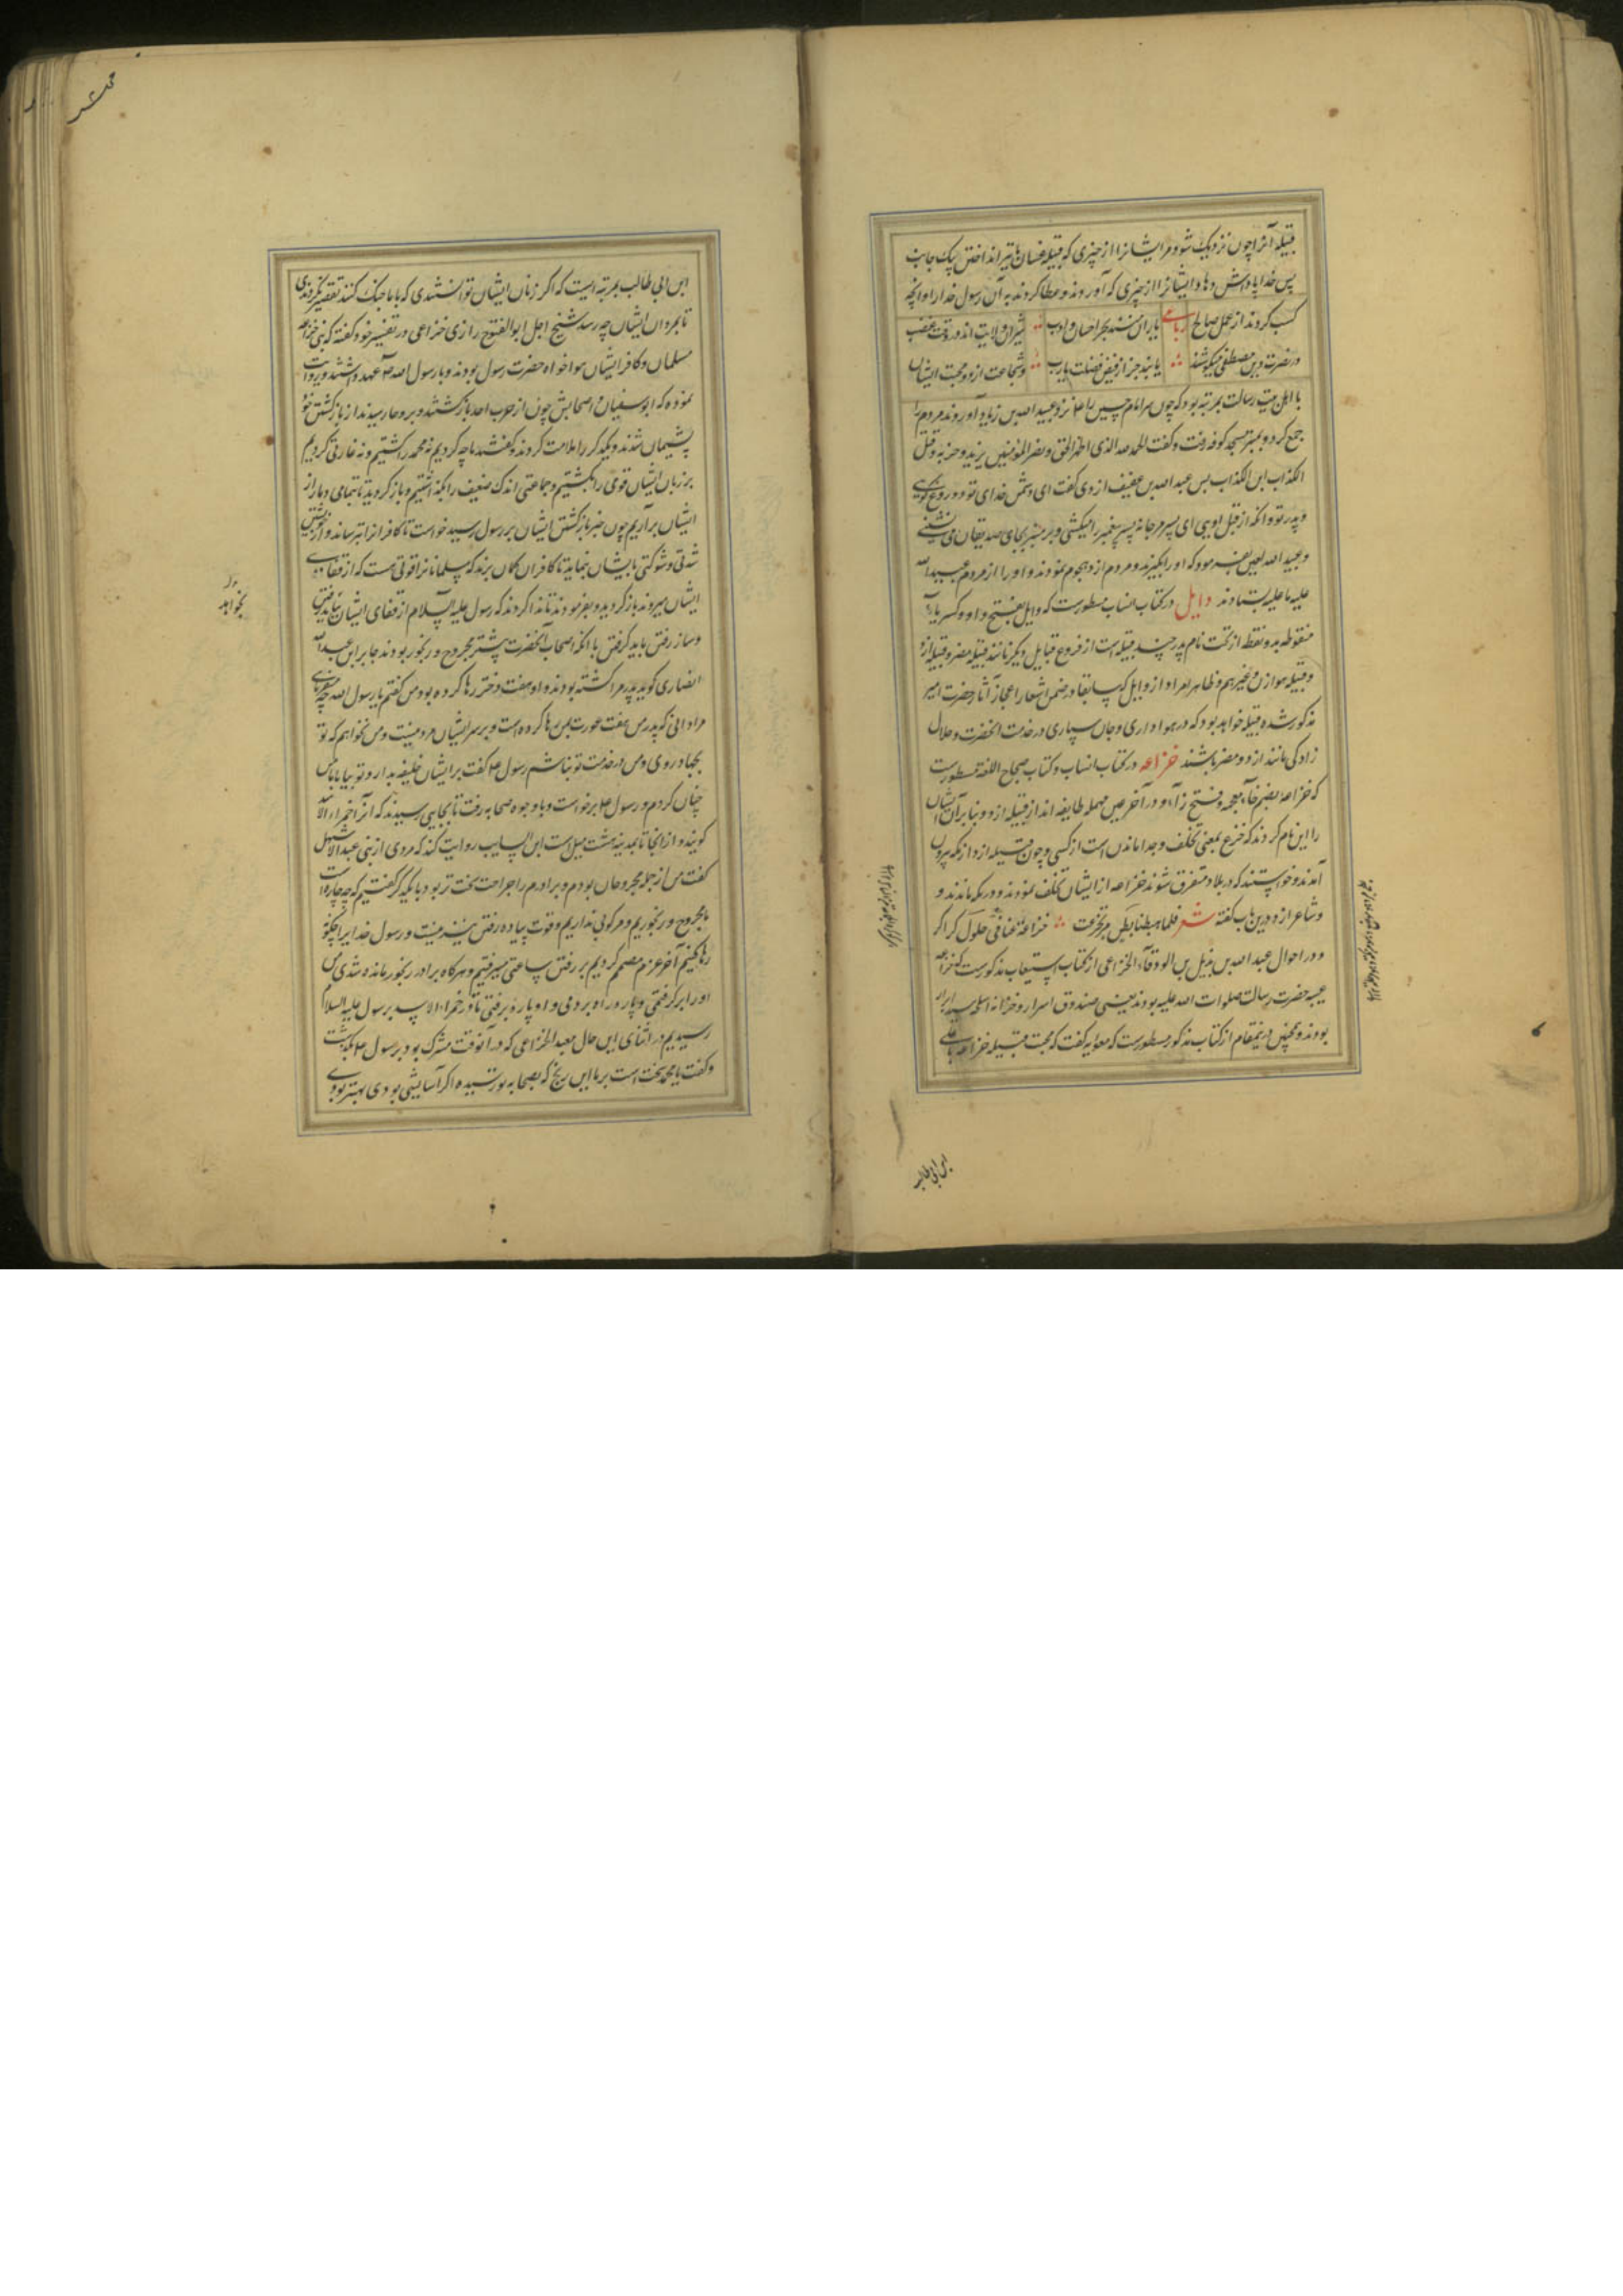 قبیله آنرا چون نزدیک شود مر ایشانرا از چیزی که قبیله غسان با تیر انداختن یک جانب
پس خدا پاداش دهاد ایشانرا از چیزی که آوردند و عطا کردند به آن رسول خدا را و آنچه
کسب کردند از عمل صالح رباعی یاران منند بحر احسان و ادب شیران ولایت اند در وقت غضب
در نصرت دین مصطفی میکوشند یابند جزا ز فیض فضلت یارب و شجاعت ازد و محبت ایشان
با اهل بیت رسالت بمرتبه بود که چون سر امام حسین را نزد عبید الله بن زیاد آوردند مردم را
جمع کرد و بمنبر مسجد کوفه رفت و گفت الحمد لله الذی اظهر الحق و نصر المؤمنین یزید و حزبه و قتل
الکذاب ابن الکذاب پس عبد الله بن عفیف ازدی گفت ای دشمن خدای تو دروغ گویی
و پدر تو و آنکه از قبل اویی ای پسر مرجانه پسر پیغمبر را میکشی و بر منبر بجای صدیقان می نشینی
و عبید الله لعین بفرمود که او را بگیرند و مردم ازد هجوم نمودند و او را از مردم عبید الله
علیه ما علیه بستاندند وایل در کتاب انساب مسطورست که وایل بفتح واو و کسر یاء
منقوطه بدو نقطه از تحت نام پدر چند قبیله است از فروع قبایل دیگر مانند قبیله مضر و قبیله ازد
و قبیله هوازن و غیرهم و ظاهر مراد از وایل که سابقا در ضمن اشعار اعجاز آثار حضرت امیر
مذکور شده قبیله خواهد بود که در هواداری و جان سپاری در خدمت آنحضرت و حلال
زادگی مانند ازد و مضر باشند خزاعه در کتاب انساب و کتاب صحاح اللغه مسطورست
که خزاعه بضم خاء معجمه و فتح زاء و در آخر عین مهمله طایفه اند از قبیله ازد و بنا بر آن ایشان
را این نام کردند که خزع بمعنی تخلف و جدا ماندن است از کسی و چون قبیله ازد از مکه بیرون
آمدند و خواستند که در بلاد متفرق شوند خزاعه از ایشان تخلف نمودند و در مکه ماندند و
شاعر ازد درین باب گفته شعر فلما هبطنا بطن مر تخزعت خزاعة عنا فی حلول کراکر
و در احوال عبد الله بن بدیل بن الورقاء الخزاعی از کتاب استیعاب مذکورست که خزاعه
عیبه حضرت رسالت صلوات الله علیه بودند یعنی صندوق اسرار و خزانه اسلحه سید ابرار
بودند و همچنین درینمقام از کتاب مذکور مسطورست که معویه گفت که محبت قبیله خزاعه با علی
ابن ابی طالب
ابن ابی طالب بمرتبه ایست که اگر زنان ایشان توانستندی که با ما جنگ کنند تقصیر نکردندی
تا بمردان ایشان چه رسد شیخ اجل ابو الفتوح رازی خزاعی در تفسیر خود گفته که بنی خزاعه
مسلمان و کافر ایشان هواخواه حضرت رسول بودند و با رسول الله عهد داشتند و روایت
نموده که ابو سفیان و اصحابش چون از حرب احد بازگشتند و بروحا رسیدند از بازگشتن خود
پشیمان شدند و یکدیگر را ملامت کردند و گفتند ما چه کردیم نه محمد را کشتیم و نه غارتی کردیم
بر زبان ایشان قوی را بکشتیم و جماعتی اندک ضعیف را بگذاشتیم و باز گردید تا بتمامی دمار از
ایشان برآریم چون خبر بازگشتن ایشان برسول رسید خواست تا کافرانرا بترساند و از خویشتن
شدتی و شوکتی بایشان بنماید تا کافران گمان برند که مسلمانانرا قوتی هست که از قفای
ایشان میروند باز گردید و بفرمودند تا ندا کردند که رسول علیه السلام از قفای ایشان
و ساز رفتن باید گرفتن با آنکه اصحاب آنحضرت بیشتر مجروح و رنجور بودند جابر ابن عبد الله
انصاری گوید پدرم را کشته بودند و او هفت دختر رها کرده بود من گفتم یا رسول الله چه میفرمایی
مرا دانی که پدر من هفت عورت بمن رها کرده است و بر سر ایشان مرد نیست و من نخواهم که تو
بجهاد روی و من در خدمت تو نباشم رسول گفت بر ایشان خلیفه بدار و تو بیا با ما من
چنان کردم و رسول برخواست و با وجوه صحابه رفت تا بجایی رسیدند که آنرا حمراء الاسد
گویند و از آنجا تا بمدینه هشت میل است ابن السایب روایت کند که مردی از بنی عبد الاشهل
گفت من از جمله مجروحان بودم و برادرم را جراحت سخت تر بود با یکدیگر گفتیم که چه چاره است
ما مجروح و رنجوریم و مرکوبی نداریم و قوت پیاده رفتن نیز نیست و رسول خدا را چگونه
رها کنیم آخر عزم مصمم کردیم بر رفتن ساعتی میرفتیم و هرگاه برادر رنجور مانده شدی من
او را برگرفتمی و پاره راه بردمی و او پاره برفتی تا در حمراء الاسد برسول علیه السلام
رسیدیم در اثنای این حال معبد الخزاعی که در آنوقت مشرک بود بر رسول بگذشت
و گفت یا محمد سخت است بر ما این رنج که بصحابه تو رسیده اگر آسایشی بودی بهتر بودی